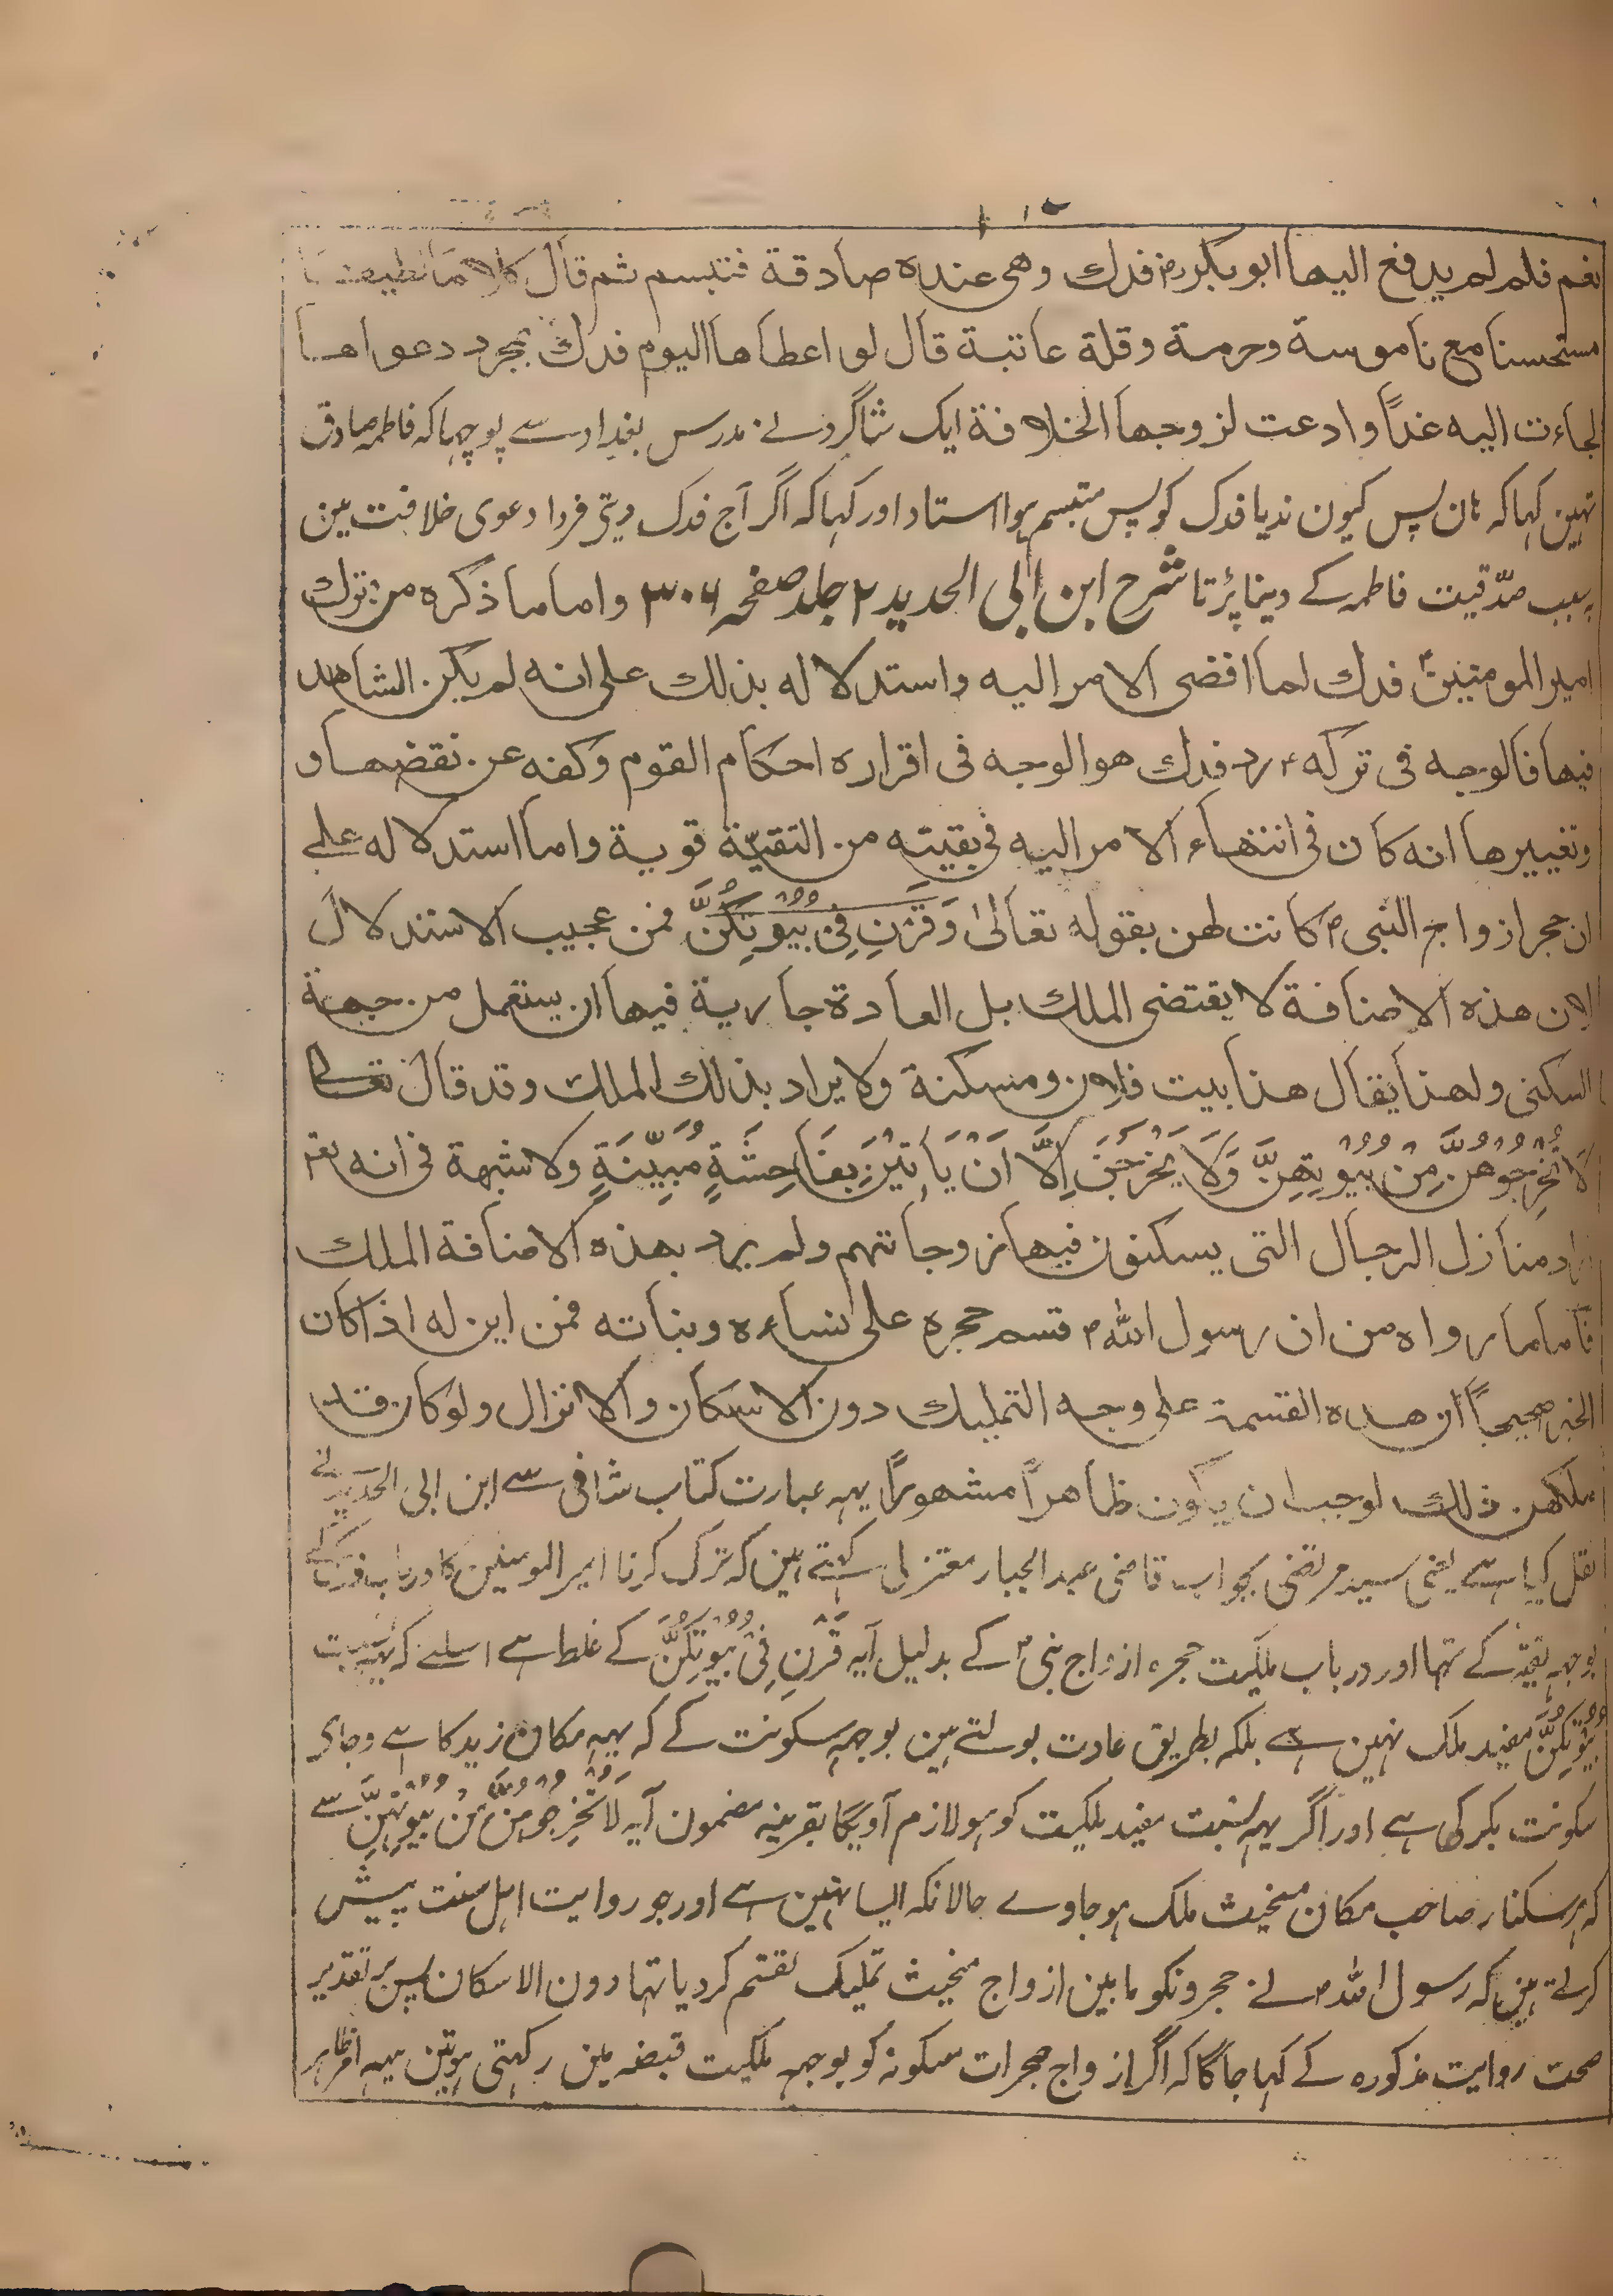 نعم فلم لم يدفع اليها ابو بكر رض فدك وهى عنده صادقة فتبسم ثم قال كلاما لطيفا
مستحسنا مع ناموسة وحرمة وقلة عاتبة قال لو اعطاها اليوم فدك بمجرد دعواها
لجاءت اليه غداً وادعت لزوجها الخلافة ایک شاگرد نے مدرس بغداد سے پوچہا کہ فاطمہ صادق
نہین کہا کہ ہان پس کیون ندیا فدک کو پس متبسم ہوا استاد اور کہا کہ اگر آج فدک دیتی فردا دعوی خلافت مین
بسبب صدّقیت فاطمہ کے دینا پڑتا شرح ابن ابی الحدید ۲ جلد صفحہ ۳۰۶ واما ما ذكره من ترك
امير المومنينؑ فدك لما افضى الامر اليه واستدلاله بذلك على انه لم يكن الشاهد
فيها فالوجه فى تركه ۴ رد فدك هو الوجه فى اقراره احكام القوم وكفه عن نقضها و
وتغييرها انه كان فى انتهاء الامر اليه فى بقيته من التقيّة قوية واما استدلاله على
ان حجر ازواج النبى ؐ كانت لهن بقوله تعالىٰ وَقَرْنِ فِىْ بُيُوْتِكُنَّ فمن عجيب الاستدلال
لان هذه الاضافة لا يقتضى الملك بل العادة جارية فيها ان يستعمل من جهة
السكنى ولهذا يقال هذا بيت فلان ومسكنة ولا يراد بذلك الملك وقد قال تعالى
لَا تُخْرِجُوْهُنَّ مِنْ بُيُوْتِهِنَّ وَلَا يَخْرُجْنَ اِلَّا اَنْ يَاْتِيْنَ بِفَاحِشَةٍ مُبَيِّنَةٍ ولا شبهة فى انه تع
اراد منازل الرجال التى يسكنون فيها زوجاتهم ولم يرد بهذه الاضافة الملك
فاما ما رواه من ان رسول اللهؐ قسم حجره على نساءه وبناته فمن اين له اذا كان
الخبر صحيحاً ان هذه القسمة على وجه التمليك دون الاسكان والانزال ولو كان قد
ملكهن ذلك لوجب ان يكون ظاهراً مشهوراً یہہ عبارت کتاب شافی سے ابن ابی الحدید نے
نقل کیا ہے یعنی سید مرتضی بجواب قاضی عبد الجبار معتزلی کہتے ہین کہ ترک کرنا امیر المومنین کا درباب فدک کے
بوجہہ تقیہ کے تہا اور در باب ملکیت حجرہ ازواج نبیؐ کے بدلیل آیہ قَرْنِ فِیْ بُيُوْتِكُنَّ کے غلط ہے اسلئے کہ نسبت
بُيُوْتِكُنَّ مفید ملک نہین ہے بلکہ بطریق عادت بولتے ہین بوجہہ سکونت کے کہ یہہ مکان زید کا ہے وجای
سکونت بکر کی ہے اور اگر یہہ نسبت مفید ملکیت کو ہو لازم آویگا بقرینہ مضمون آیہ لَا تُخْرِجُوْهُنَّ مِنْ بُيُوْتِهِنَّ سے
کہ ہر سکنار صاحب مکان منحیث ملک ہو جاوے حالانکہ ایسا نہین ہے اور جو روایت اہل سنت پیش
کرتے ہین کہ رسول اللہؐ نے حجرونکو مابین ازواج منحیث تملیک تقسیم کر دیا تہا دون الاسکان پس بر تقدیر
صحت روایت مذکورہ کے کہا جاگا کہ اگر ازواج حجرات مسکونہ کو بوجہہ ملکیت قبضہ مین رکہتی ہوتین یہہ امر ظاہر